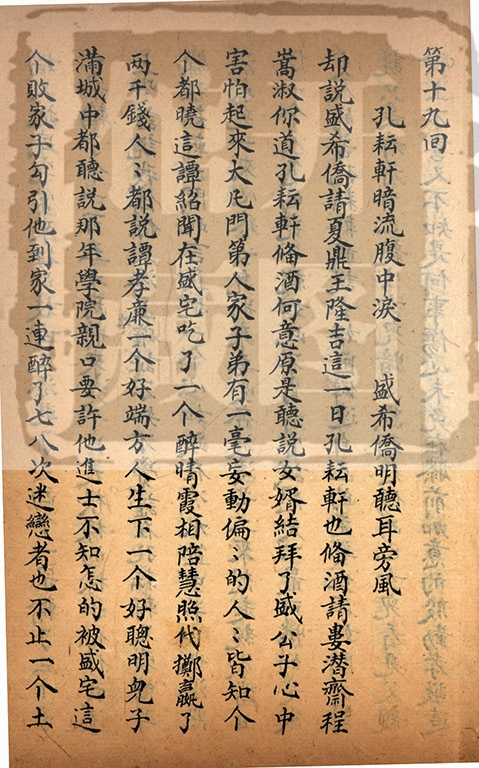 第十九回
孔耘軒暗流腹中淚　盛希僑明聽耳旁風
却說盛希僑請夏鼎王隆吉這一日孔耘軒也俻酒請婁潛齋程
嵩淑你道孔耘軒俻酒何意原是聽說女婿結拜了盛公子心中
害怕起來大凡門第人家子弟有一毫妄動偏〻的人〻皆知个
个都曉這譚紹聞在盛宅吃了一个醉晴霞相陪慧照代擲贏了
两千錢人〻都說譚孝廉一个好端方人生下一个好聰明兒子
滿城中都聽說那年學院親口要許他進士不知怎的被盛宅這
个敗家子勾引他到家一連醉了七八次迷戀者也不止一个土